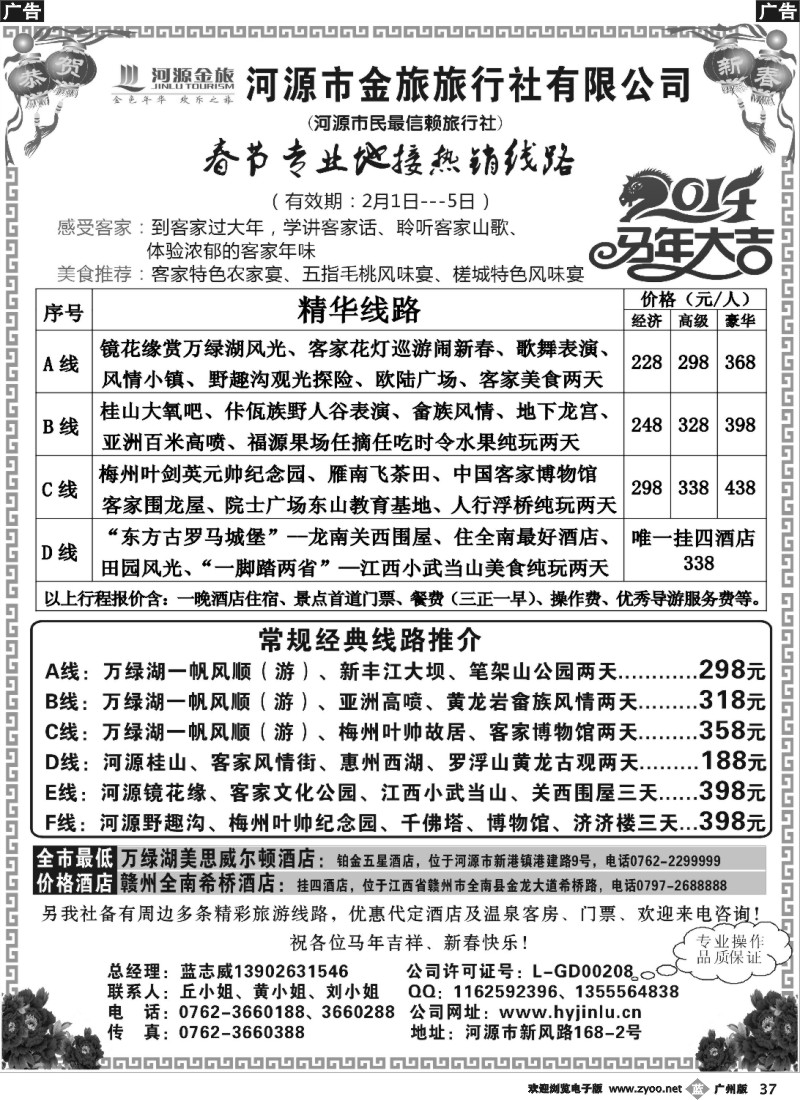 广告
广告
恭贺
新春
河源金旅
JINLU TOURISM
金色年华 欢乐之旅
河源市金旅旅行社有限公司
(河源市民最信赖旅行社)
春节专业地接热销线路
(有效期:2月1日---5日)
2014
马年大吉
感受客家:到客家过大年,学讲客家话、聆听客家山歌、
体验浓郁的客家年味
美食推荐:客家特色农家宴、五指毛桃风味宴、槎城特色风味宴
序号 精华线路 价格(元/人)
经济 高级 豪华
A线 镜花缘赏万绿湖风光、客家花灯巡游闹新春、歌舞表演、
风情小镇、野趣沟观光探险、欧陆广场、客家美食两天 228 298 368
B线 桂山大氧吧、佧佤族野人谷表演、畲族风情、地下龙宫、
亚洲百米高喷、福源果场任摘任吃时令水果纯玩两天 248 328 398
C线 梅州叶剑英元帅纪念园、雁南飞茶田、中国客家博物馆
客家围龙屋、院士广场东山教育基地、人行浮桥纯玩两天 298 338 438
D线 “东方古罗马城堡”--龙南关西围屋、住全南最好酒店、
田园风光、“一脚踏两省”—江西小武当山美食纯玩两天 唯一挂四酒店
338
以上行程报价含:一晚酒店住宿、景点首道门票、餐费(三正一早)、操作费、优秀导游服务费等。
常规经典线路推介
A线:万绿湖一帆风顺(游)、新丰江大坝、笔架山公园两天............298元
B线:万绿湖一帆风顺(游)、亚洲高喷、黄龙岩畲族风情两天.........318元
C线:万绿湖一帆风顺(游)、梅州叶帅故居、客家博物馆两天.........358元
D线:河源桂山、客家风情街、惠州西湖、罗浮山黄龙古观两天.........188元
E线:河源镜花缘、客家文化公园、江西小武当山、关西围屋三天......398元
F线:河源野趣沟、梅州叶帅纪念园、千佛塔、博物馆、济济楼三天...398元
全市最低
价格酒店
万绿湖美思威尔顿酒店:铂金五星酒店,位于河源市新港镇港建路9号,电话0762-2299999
赣州全南希桥酒店:挂四酒店,位于江西省赣州市全南县金龙大道希桥路,电话0797-2688888
另我社备有周边多条精彩旅游线路,优惠代定酒店及温泉客房、门票、欢迎来电咨询!
祝各位马年吉祥、新春快乐!
专业操作
品质保证
总经理:蓝志威13902631546 公司许可证号:L-GD00208
联系人:丘小姐、黄小姐、刘小姐 QQ:1162592396、1355564838
电 话:0762-3660188、3660288 公司网站:www.hyjinlu.cn
传 真:0762-3660388 地址:河源市新风路168-2号
欢迎浏览电子版 www.zyoo.net 蓝 广州版 37